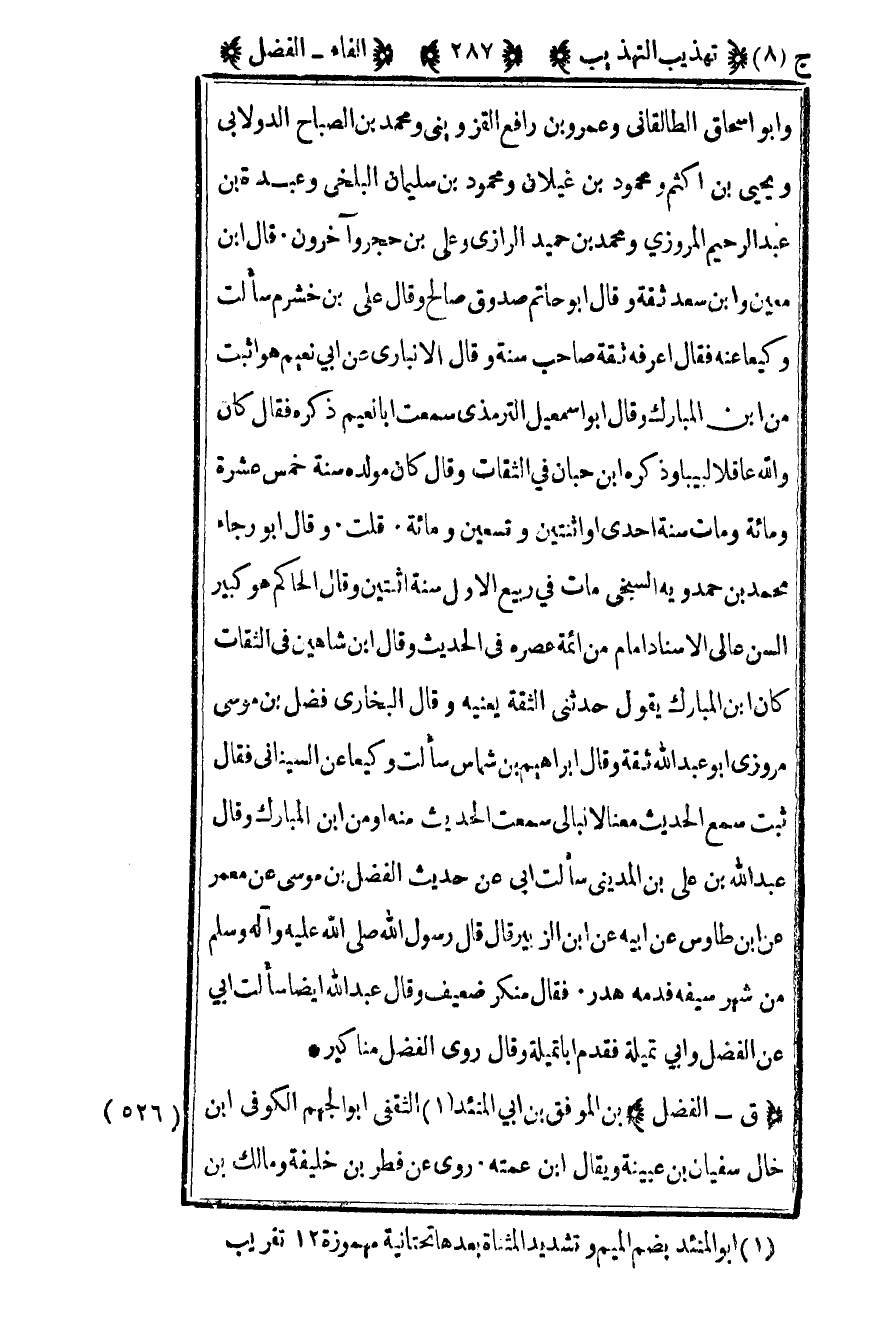 ج (٨) ﴿ تهذيب التهذيب ﴾ ﴿ ٢٨٧ ﴾ ﴿ الفاء ـ الفضل ﴾
وابو اسحاق الطالقانى وعمرو بن رافع القزوينى ومحمد بن الصباح الدولابى
ويحيى بن اكثم ومحمود بن غيلان ومحمود بن سليمان البلخى وعبدة بن
عبد الرحيم المروزي ومحمد بن حميد الرازى وعلى بن حجر وآخرون · قال ابن
معين وابن سعد ثقة وقال ابو حاتم صدوق صالح وقال على بن خشرم سألت
وكيعا عنه فقال اعرفه ثقة صاحب سنة وقال الانبارى عن ابي نعيم هو اثبت
من ابن المبارك وقال ابو اسمعيل الترمذى سمعت ابا نعيم ذكره فقال كان
والله عاقلا لبيبا وذكره ابن حبان في الثقات وقال كان مولده سنة خمس عشرة
ومائة ومات سنة احدى او اثنتين وتسعين ومائة · قلت · وقال ابو رجاء
محمد بن حمدويه السبخى مات في ربيع الاول سنة اثنتين وقال الحاكم هو كبير
السن عالى الاسناد امام من ائمة عصره فى الحديث وقال ابن شاهين فى الثقات
كان ابن المبارك يقول حدثنى الثقة يعنيه وقال البخارى فضل بن موسى
مروزى ابو عبد الله ثقة وقال ابراهيم بن شماس سألت وكيعا عن السينانى فقال
ثبت سمع الحديث معنا لا نبالى سمعت الحديث منه او من ابن المبارك وقال
عبد الله بن على بن المدينى سألت ابى عن حديث الفضل بن موسى عن معمر
عن ابن طاوس عن ابيه عن ابن الزبير قال قال رسول الله صلى الله عليه وآله وسلم
من شهر سيفه فدمه هدر · فقال منكر ضعيف وقال عبد الله ايضا سألت ابي
عن الفضل وابي تميلة فقدم ابا تميلة وقال روى الفضل مناكير •
﴿ ق ـ الفضل ﴾ بن الموفق بن ابي المتئد (١) الثقفى ابو الجهم الكوفى ابن (٥٢٦)
خال سفيان بن عيينة ويقال ابن عمته · روى عن فطر بن خليفة ومالك بن
(١) ابو المتئد بضم الميم وتشديد المثناة بعدها تحتانية مهموزة ١٢ تقريب